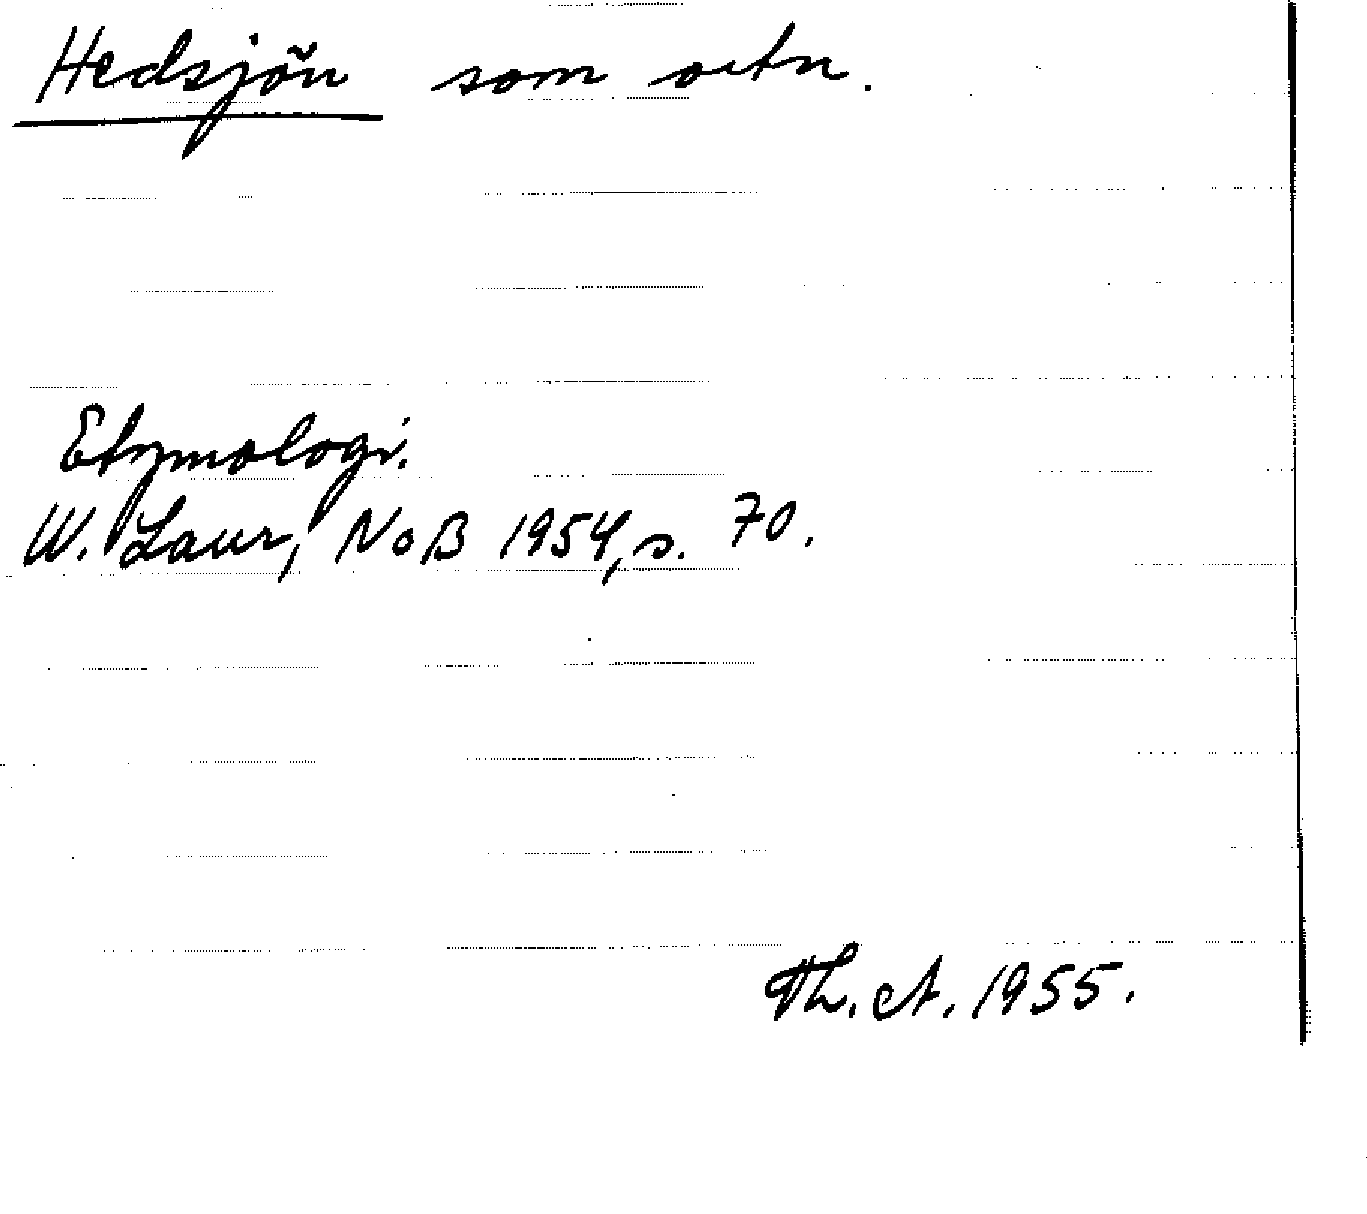 Hedsjön som ortn.
Etymologi.
W. Laur, NoB 1954, s. 70.
Th. A. 1955.